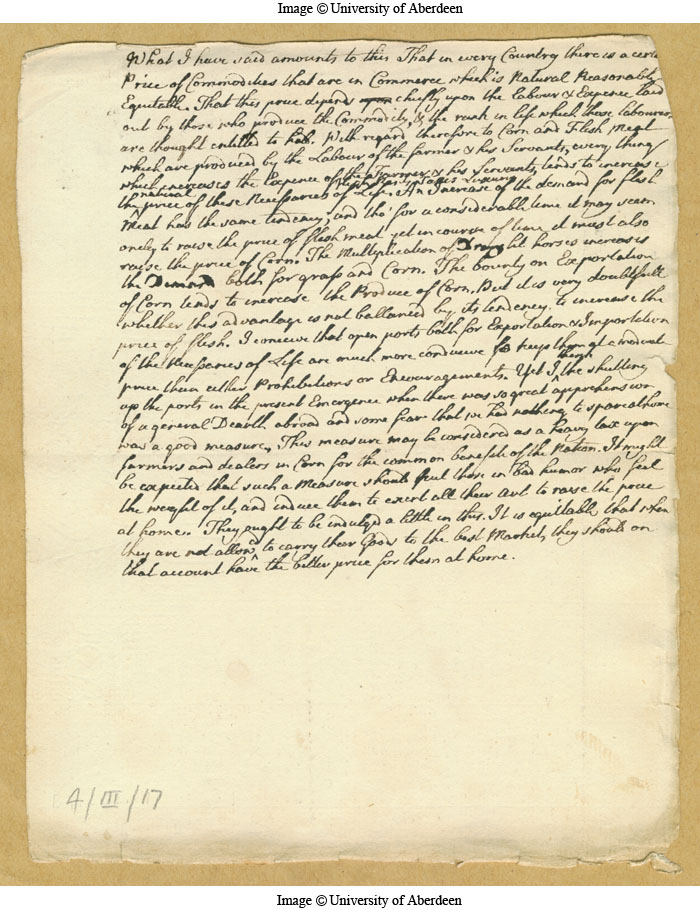 Image © University of Aberdeen
What I have said amounts to this That in every Country there is a certa
Price of Commodities that are in Commerce which is Natural Reasonable
Equitable. That this price depends chiefly upon the labour & Expence laid
out by those who produce the Commodity, & the rank in life which these labourers
are thought entitled to hold. With regard therefore to Corn and Flesh Meat
which are produced by the Labour of the farmer & his Servants, every thing
which increases the Expence of the Farmer & his Servants, tends to increase
natural
the price of these Necessaries of Life. An Increase of the demand for flesh
Meat has the same tendency, and tho' for a considerable time it may seem
onely to raise the price of flesh meat yet in course of time, it must also
raise the price of Corn. The Multiplication of Draught horses increases
the Demand both for grass and Corn. The bounty on Exportation
of Corn tends to increase the Produce of Corn. But it is very doubtfull
whether this advantage is not ballanced by its tendency to increase the
price of flesh. I conceive that open ports both for Exportation & Importation
of the Necessaries of Life are much more conducive to keep them at a moderate
price than either Prohibitions or Encouragements. Yet I think the shutting
up the ports in the present Emergence when there was so great apprehension
of a general Dearth abroad and some fear that we had nothing to spare at home
was a good measure. This measure may be considered as a heavy tax upon
farmers and dealers in Corn for the common benefite of the Nation. It might
be expected that such a Measure should put those in bad humor who feel
the weight of it, and induce them to exert all their art to raise the price
at home. They ought to be indulged a little in this. It is equitable that when
they are not allowd to carry their Goods to the best Market, they should on
that account have the better price for them at home.
4/III/17
Image © University of Aberdeen